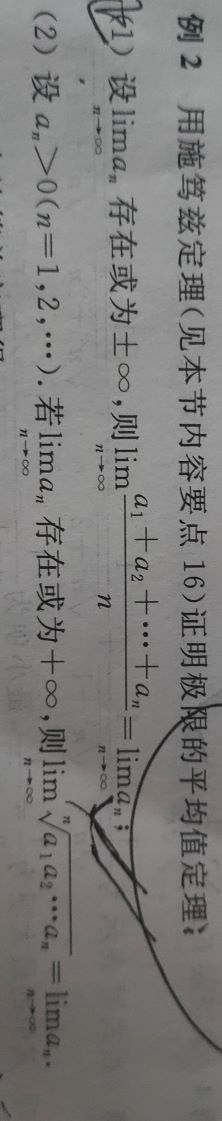 例 2 用施笃兹定理(见本节内容要点 16)证明极限的平均值定理:
(1) 设 lim_{n→∞} a_n 存在或为±∞,则 lim_{n→∞} (a_1+a_2+⋯+a_n)/n = lim_{n→∞} a_n;
(2) 设 a_n>0(n=1,2,⋯). 若 lim_{n→∞} a_n 存在或为+∞,则 lim_{n→∞} \sqrt[n]{a_1a_2⋯a_n} = lim_{n→∞} a_n.